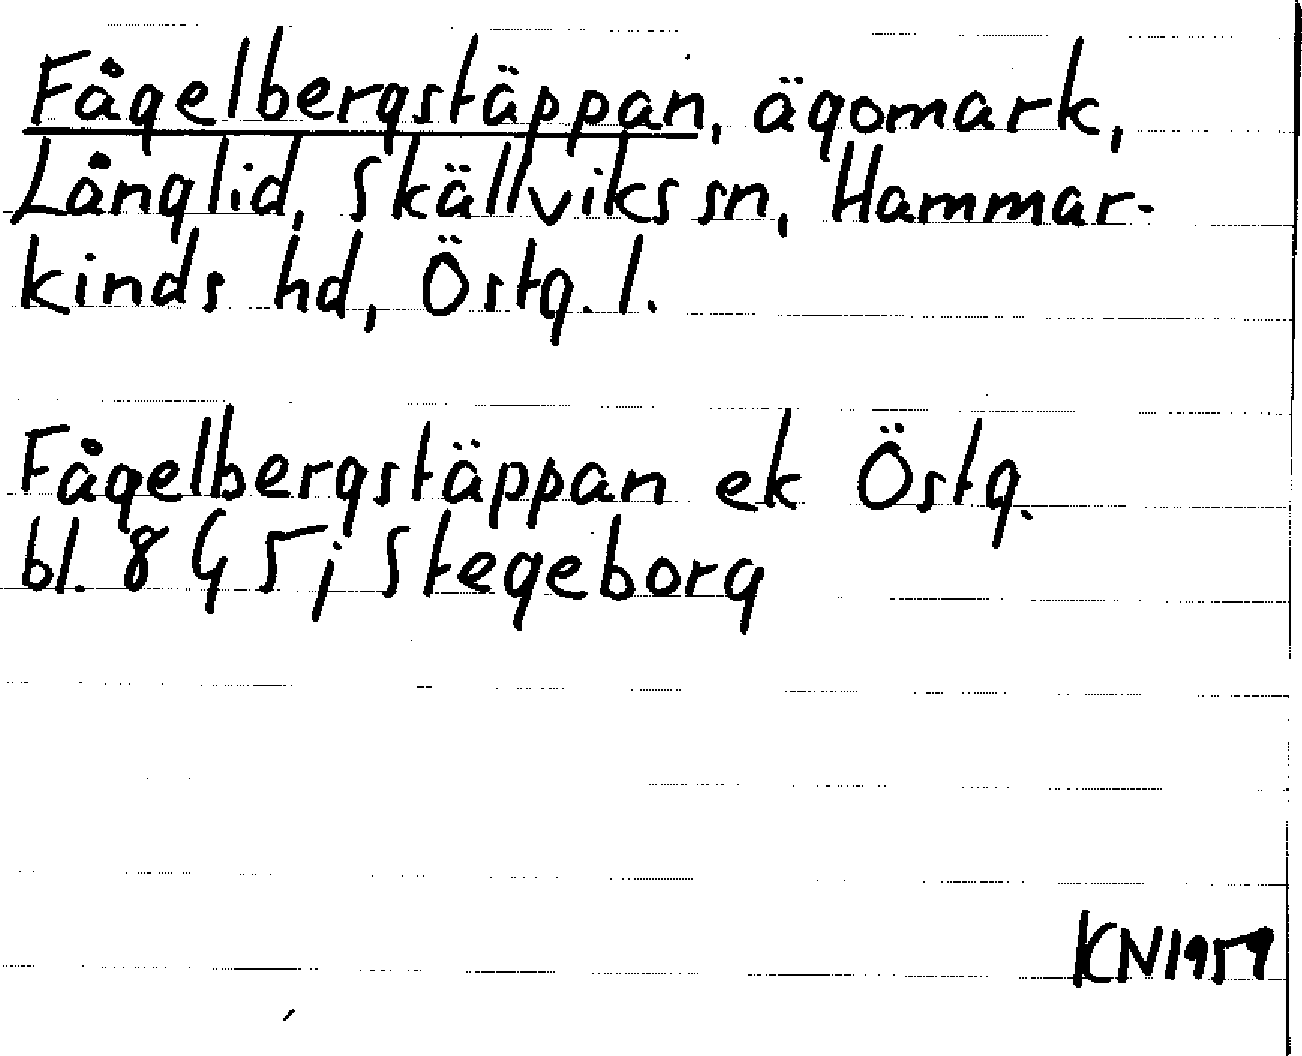 Fågelbergstäppan, ägomark,
Långlid, Skällviks sn, Hammar-
kinds hd, Östg. l.
Fågelbergstäppan ek Östg.
bl. 8 G 5; Stegeborg
KN1959